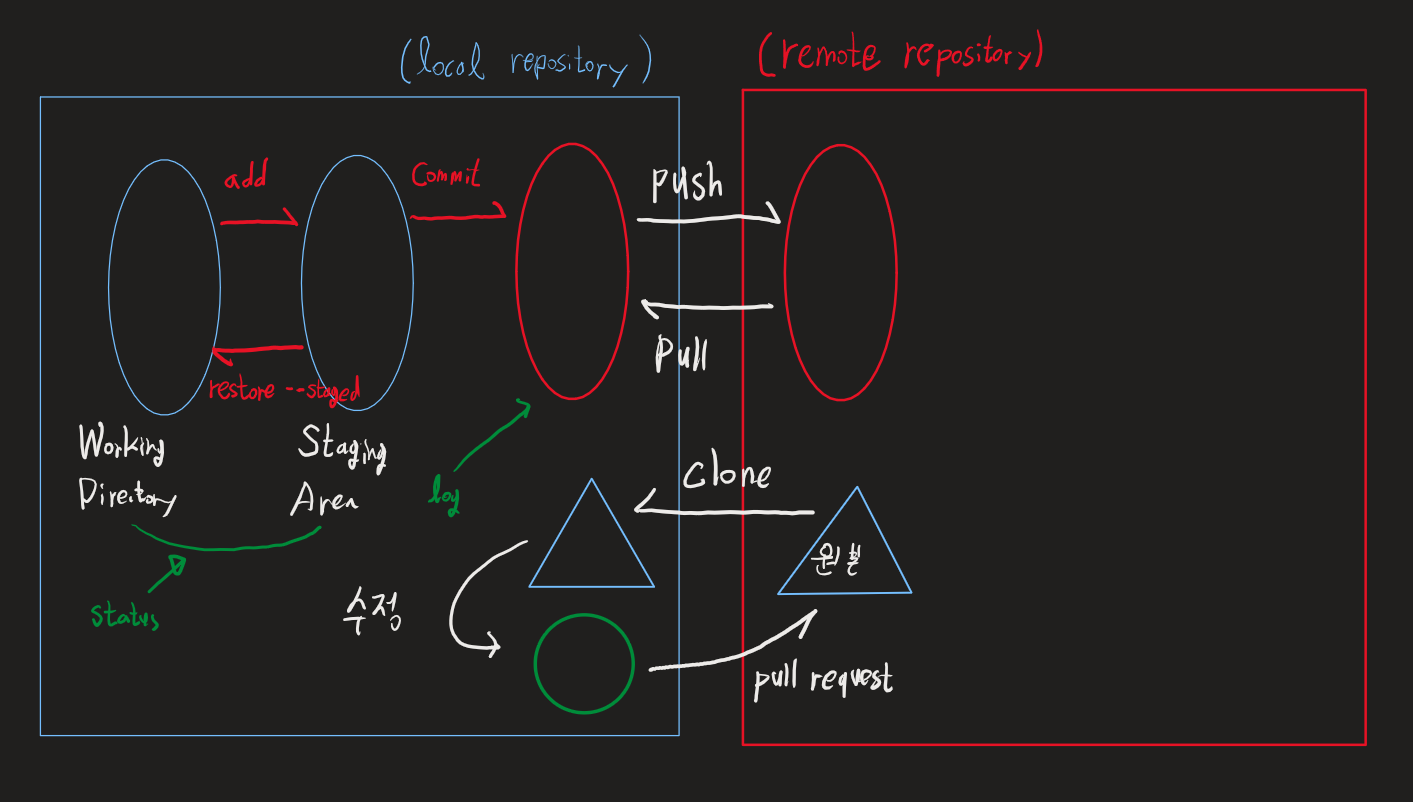 (local repository)
(remote repository)
add
Commit
push
pull
restore --staged
Working
Directory
Staging
Area
log
Clone
원본
status
수정
pull request